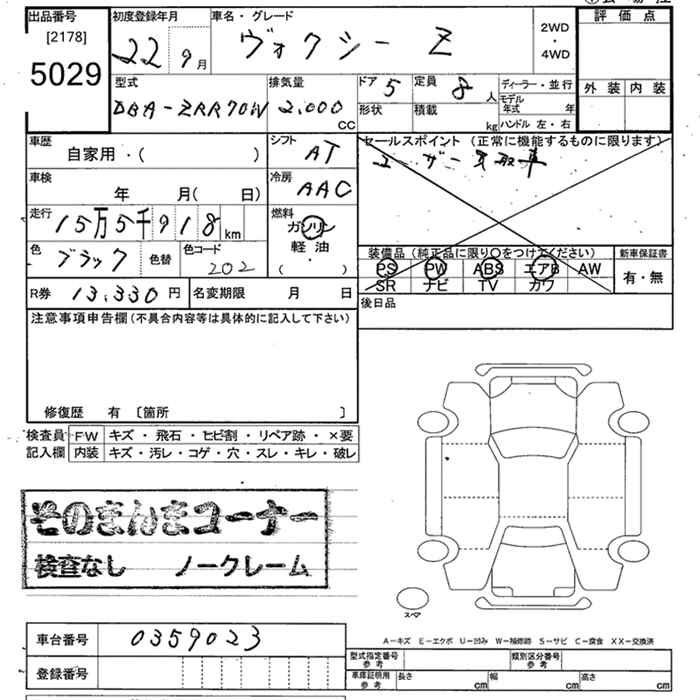 出品番号
[2178]
5029
初度登録年月
22 9月
車名・グレード
ヴォクシー Z
2WD
・
4WD
評価点
外装 内装
型式
DBA-ZRR70W
排気量
2,000
CC
ドア 5
定員 8 人
形状
積載 kg
ディーラー・並行
モデル年式 年
ハンドル 左・右
車歴
自家用・( )
シフト
AT
セールスポイント (正常に機能するものに限ります)
ユーザー買取車
車検
年 月( 日)
冷房
AAC
走行
15万5千918km
燃料
ガソリン
軽油
( )
色
ブラック
色替
色コード
202
装備品 (純正品に限り○をつけてください)
PS PW ABS エアB AW
SR ナビ TV カワ
新車保証書
有・無
R券 13,330円
名変期限 月 日
後日品
注意事項申告欄(不具合内容等は具体的に記入して下さい)
修復歴 有 〔箇所 〕
検査員記入欄
FW キズ・飛石・ヒビ割・リペア跡・×要
内装 キズ・汚レ・コゲ・穴・スレ・キレ・破レ
そのまんまコーナー
検査なし ノークレーム
スペア
A-キズ E-エクボ U-凹み W-補修跡 S-サビ C-腐食 XX-交換済
車台番号 0359023
登録番号
型式指定番号 参考
類別区分番号 参考
車庫証明用 参考
長さ cm
幅 cm
高さ cm